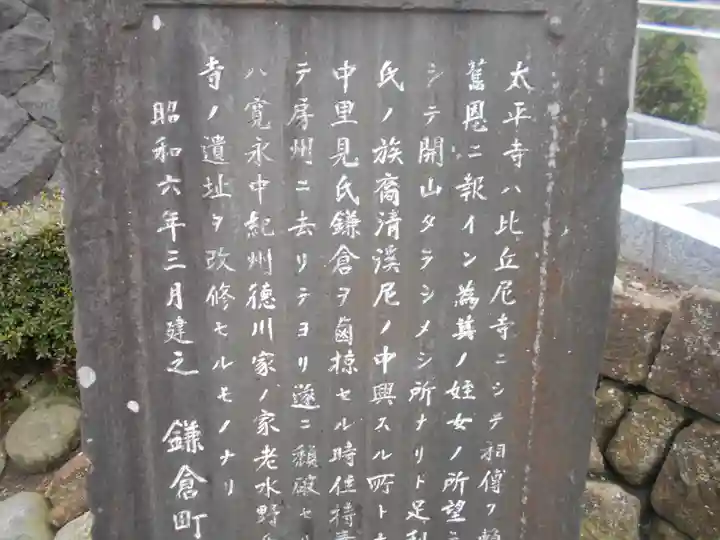 太平寺ハ比丘尼寺ニシテ相傳フ頼
舊恩ニ報イン為其ノ姪女ノ所望ニ
シテ開山タラシメシ所ナリト足利
氏ノ族裔清溪尼ノ中興スル所ト
中里見氏鎌倉ヲ鹵掠セル時住持青
テ房州ニ去リテヨリ遂ニ頽破セリ
ハ寛永中紀州徳川家ノ家老水野
寺ノ遺址ヲ改修セルモノナリ
昭和六年三月建之 鎌倉町